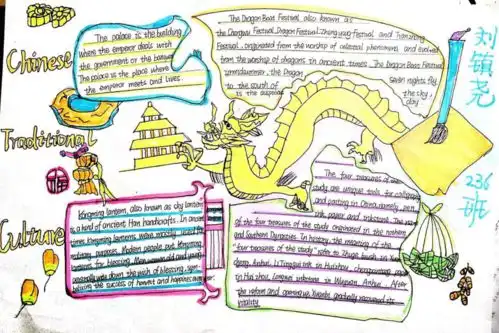 Chinese
Traditional
Culture
The palace is the building
where the emperor deals with
the government or the
The palace is the place where
the emperor meets and lives.
The Dragon Boat Festival, also known as
the Festival, Dragon Festival, Zhengyang Festival and Tianzhong
Festival, originated from the worship of celestial phenomena, and evolved
from the worship of dragons in ancient times. The Dragon Boat Festival
the Dragon
seven nights fly
to the south of
the sky.
is the
day
刘
尧
236
班
Kongming lantern, also known as sky lantern
is a kind of ancient Han handicrafts. In ancient
times, Kongming lanterns were mostly used for
military purpose. Modern people put Kongming
lanterns for blessing. Men, women, old and young
write down the wish of blessing,
the success of harvest and happiness
The four treasures of the
study are unique tools for calligraphy
and painting in China, namely, pen,
ink, paper and inkstone. The name
of the four treasures of the study originated in the northern
and Southern Dynasties. In history, the meaning of the
"four treasures of the study" refers to Zhuge brush in Xuan
cheng, Anhui, Li Tinggui ink in Huizhou, chengxintang paper
in Huizhou, Longwei inkstone in Wuyuan, Anhui. After
the reform and opening up, Xuanbi gradually recovered its
vitality.